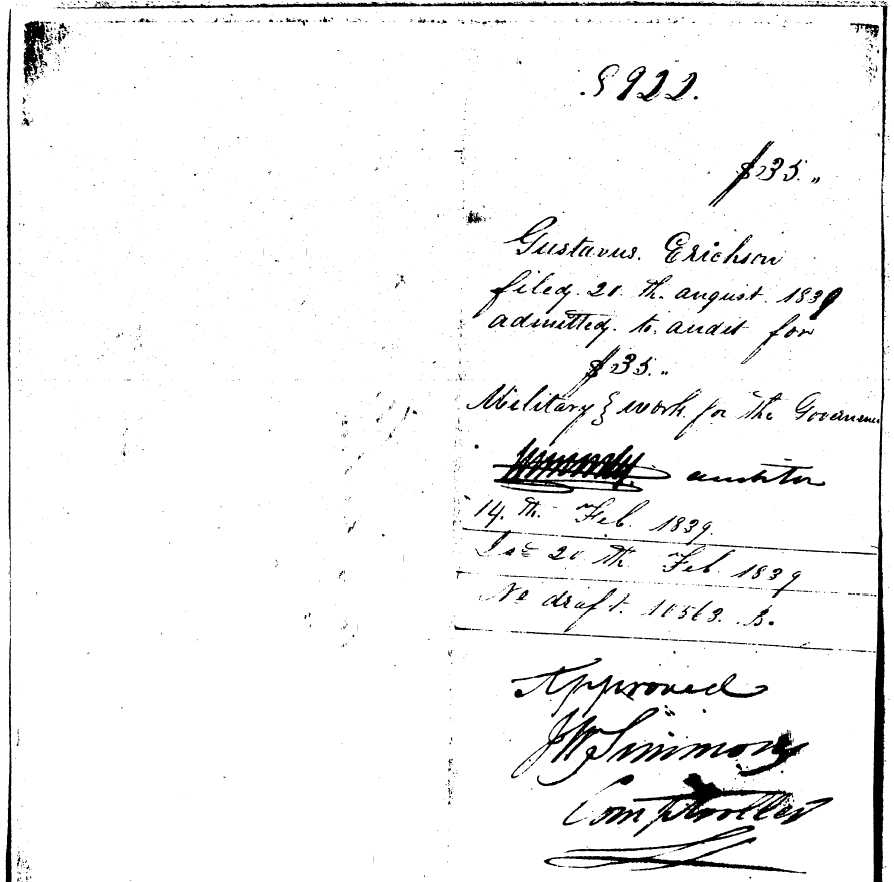 8922.
$35.,,
Gustavus. Erickson
filed. 20. th. august. 1838
admitted. to. audit for
$35.,,
Military & work for the Governme
auditor
14. th. Feb. 1839.
Iss 20 th Feb. 1839
No draft. 10563. B.
Approved
JW Simmons
Comptroller